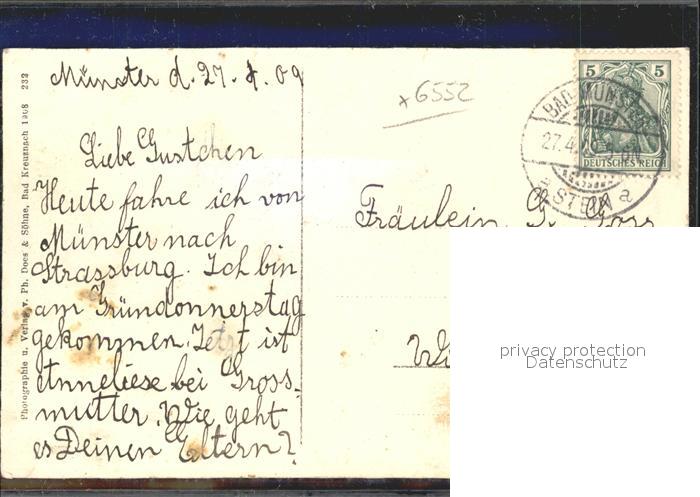 Münster d. 27. 4. 09
*6552
5 5
DEUTSCHES REICH
BAD MÜNSTER
27.4.
STEIN a
Liebe Gustchen
Heute fahre ich von
Münster nach
Strassburg. Ich bin
am Gründonnerstag
gekommen. Jetzt ist
Anneliese bei Gross-
mutter. Wie geht
es Deinen Eltern?
Fräulein G.
privacy protection
Datenschutz
Photographie u. Verlag v. Ph. Does & Söhne, Bad Kreuznach 1908 232